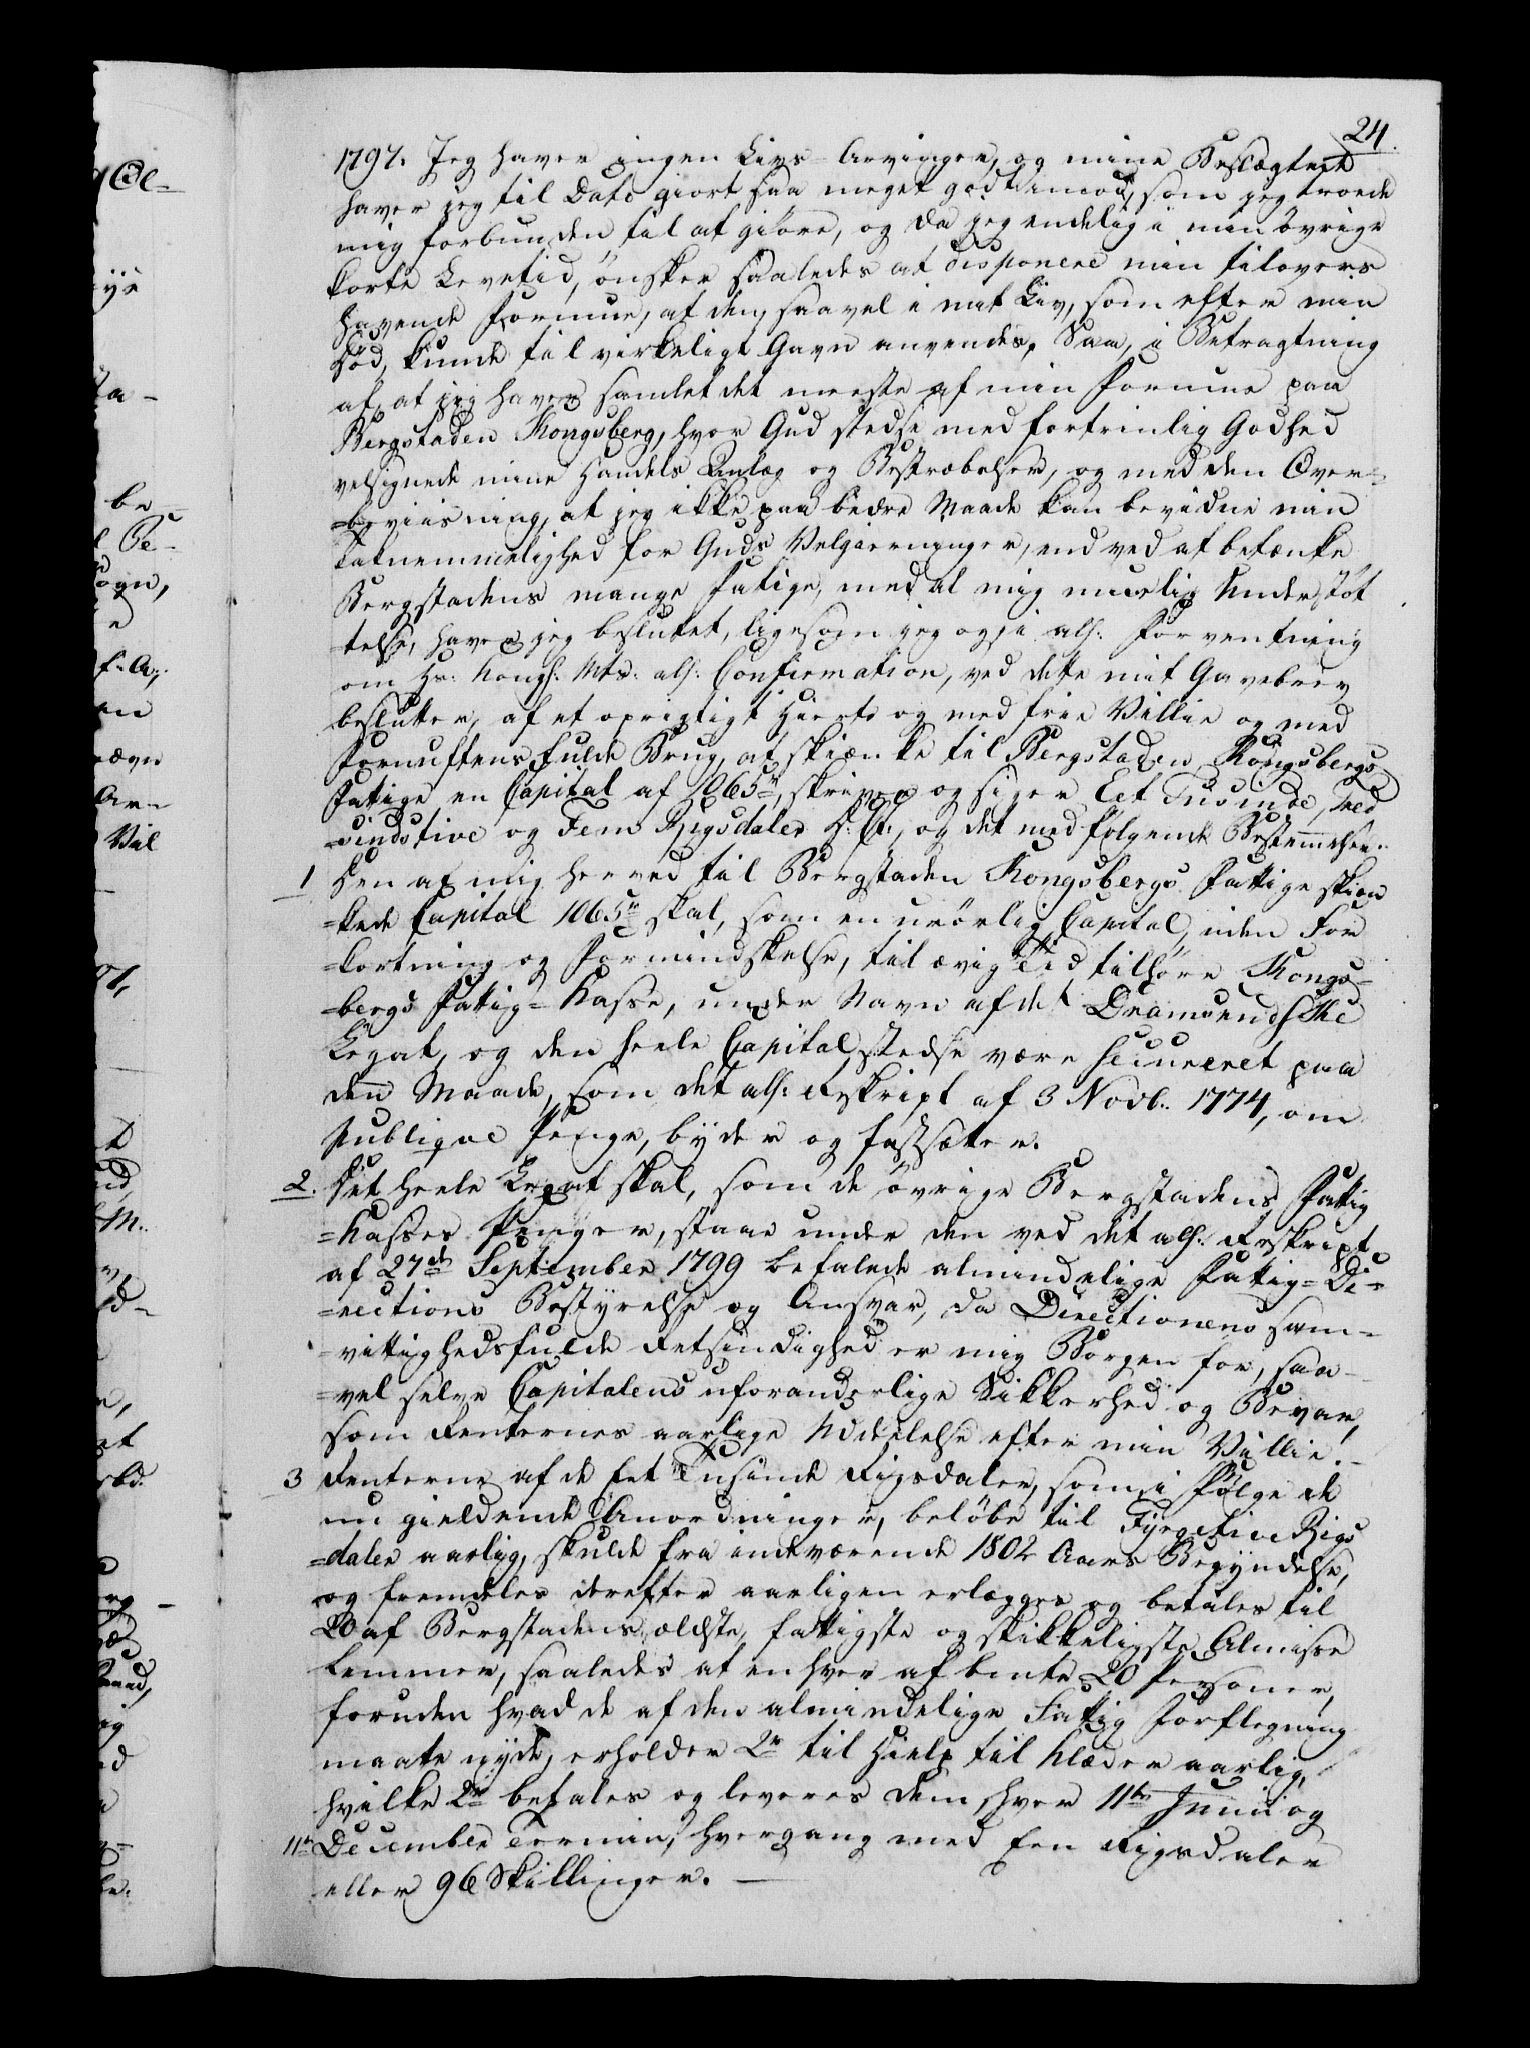 24.
1797. Jeg haver ingen Livs-Arvinger, og mine Beslægtede
haver jeg til Dato giort saa meget godt imod, som jeg troede
mig forbunden til at giöre, og da jeg endelig i min övrige
korte Levetid, önsker saaledes at disponere min tilovers
havende Formue, at den, saavel i mit Liv, som efter min
Död, kunde til virkeligt Gavn anvendes, Saa, i Betragtning
af, at jeg haver samlet det meeste af min Formue paa
Bergstaden Kongsberg, hvor Gud stedse med fortrinlig Godhed
velsignede mine Handels Anlæg og Bestræbelser, og med den Over-
=beviisning, at jeg ikke paa bedre Maade kan bevidne min
taknemmelighed for Guds Velgierninger, end ved at betænke
Bergstadens mange Fattige, med al mig muelig Understöt
=telse, haver jeg besluttet, ligesom jeg og i alh: Forventning
om Hs: Kongl: Mts: alh: Confirmation, ved dette mit Gavebrev
beslutter, af et oprigtigt Hierte og med frie Villie og med
Fornuftens fulde Brug, at skiænke til Bergstaden Kongsbergs
Fattige en Capital af 1065 rd, skriver og siger Eet Tusinde, Tred
=sindstive og Fem Rigsdaler D: C:, og det med fölgende Bestemmelser.
1 Den af mig herved til Bergstaden Kongsbergs Fattige skiæn
=kede Capital 1065 rd skal, som en urörlig Capital, uden For
=kortning og Formindskelse, til ævig Tid tilhöre Kongs-
=bergs Fattig=Kasse, under Navn af det Dramsendsche
Legat, og den heele Capital stedse være secureret paa
den Maade, som det alh: Reskript af 3 Novb. 1774, om
publique Penge, byder og fastsætter.
2. Det heele Legat skal, som de övrige Bergstadens Fattig
=Kasses Penger, staae under den ved det alh: Reskript
af 27de September 1799 befalede almindelige Fattig=Di-
=rections Bestyrelse og Ansvar, da Directionens sam-
=vittighedsfulde Retsindighed er mig Borgen for, saa-
=vel selve Capitalens uforanderlige Sikkerhed og Bevar,
som Renternes aarlige Uddeelelse efter min Villie.
3 Renterne af de Eet Tusinde Rigsdaler, som i Fölge de
nu gieldende Anordninger, beløbe til Fyrgetive Rigs
=daler aarlig, skulde fra indeværende 1802 Aars Begyndelse,
og fremdeles derefter aarligen erlægges og betales til
20 af Bergstadens ældste, fattigste og skikkeligste Almisse
Lemmer, saaledes at enhver af bemte 20 Personer,
foruden hvad de af den almindelige Fattig Forflegning
maate nyde, erholder 2 rd til Hielp til Klæder aarlig,
hvilke 2 rd betales og leveres dem hver 11te Junii og
11te December Termin, hvergang med Een Rigsdaler
eller 96 Skillinger.